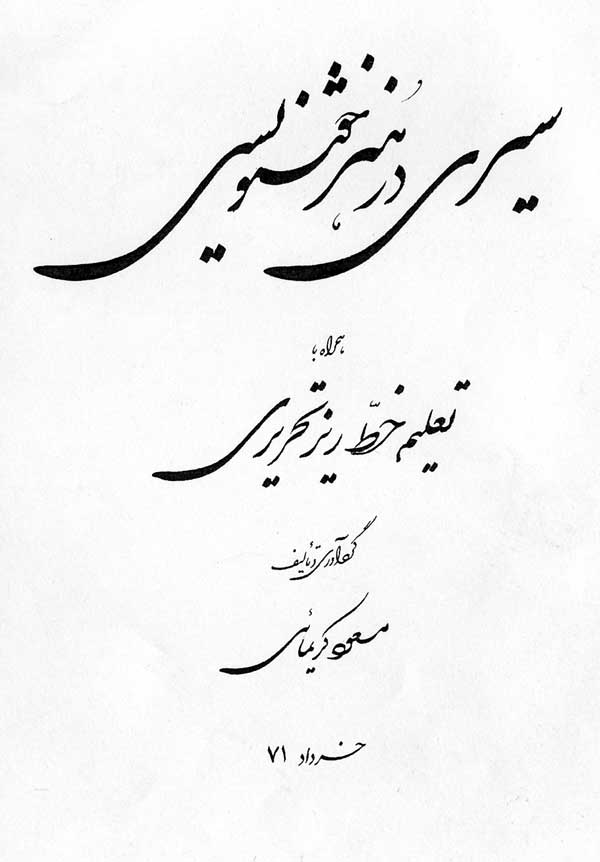 سیری در هنر خوشنویسی
همراه با
تعلیم خطّ ریز تحریری
گردآوری و تألیف
مسعود کریمائی
خرداد ۷۱